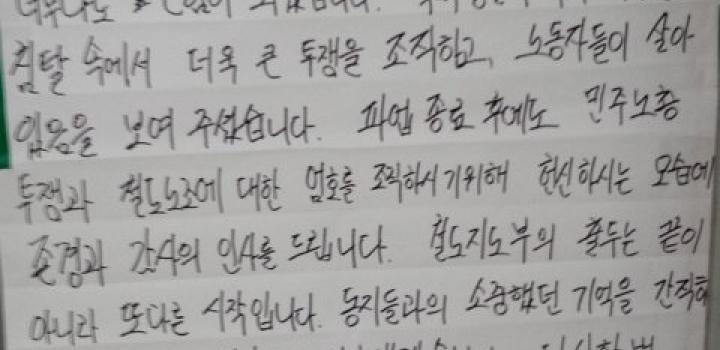 침탈 속에서 더욱 큰 투쟁을 조직하고, 노동자들이 살아
있음을 보여 주셨습니다. 파업 종료 후에도 민주노총
투쟁과 철도노조에 대한 엄호를 조직하시기위해 헌신하시는 모습에
존경과 감사의 인사를 드립니다. 철도지도부의 출두는 끝이
아니라 또다른 시작입니다. 동지들과의 소중했던 기억을 간직하